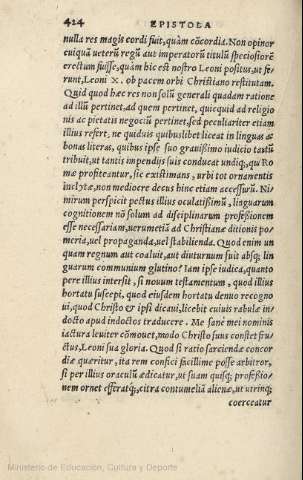 424 EPISTOLA
nulla res magis cordi fuit, quàm cõcordia. Non opinor
cuiquã ueterũ regũ aut imperatorũ titulũ speciosiorẽ
erectum fuisse, quàm hic est nostro Leoni positus, ut fe-
runt, Leoni X. ob pacem orbi Christiano restitutam.
Quid quod hæc res non solũ generali quadam ratione
ad illũ pertinet, ad quem pertinet, quicquid ad religio
nis ac pietatis negociũ pertinet, sed peculiariter etiam
illius refert, ne quiduis quibuslibet liceat in linguas ac
bonas literas, quibus ipse suo grauissimo iudicio tantũ
tribuit, ut tantis impendijs suis conducat undiq;, qui Ro
mæ profiteantur, sic existimans, urbi tot ornamentis
inclytæ, non mediocre decus hinc etiam accessurũ. Ni-
mirum perspicit pectus illius oculatissimũ, linguarum
cognitionem nõ solum ad disciplinarum professionem
esse necessariam, uerumetiã ad Christianæ ditionis po-
meria, uel propaganda, uel stabilienda. Quod enim un
quam regnum aut coaluit, aut diuturnum fuit absq; lin
guarum communium glutino? Iam ipse iudica, quanto
pere illius intersit, si nouum testamentum, quod illius
hortatu suscepi, quod eiusdem hortatu denuo recogno
ui, quod Christo & ipsi dicaui, licebit cuiuis rabulæ in-
docto apud indoctos traducere. Me sanè mei nominis
iactura leuiter cõmouet, modo Christo suus constet fru
ctus, Leoni sua gloria. Quod si ratio sarciendæ concor
diæ quæritur, ita rem confici facillime posse arbitror,
si per illius oraculũ ædicatur, ut suam quisq; professio-
nem ornet efferatq;, citra contumeliã alienæ, ut utrinq;
coerceatur
Ministerio de Educación, Cultura y Deporte